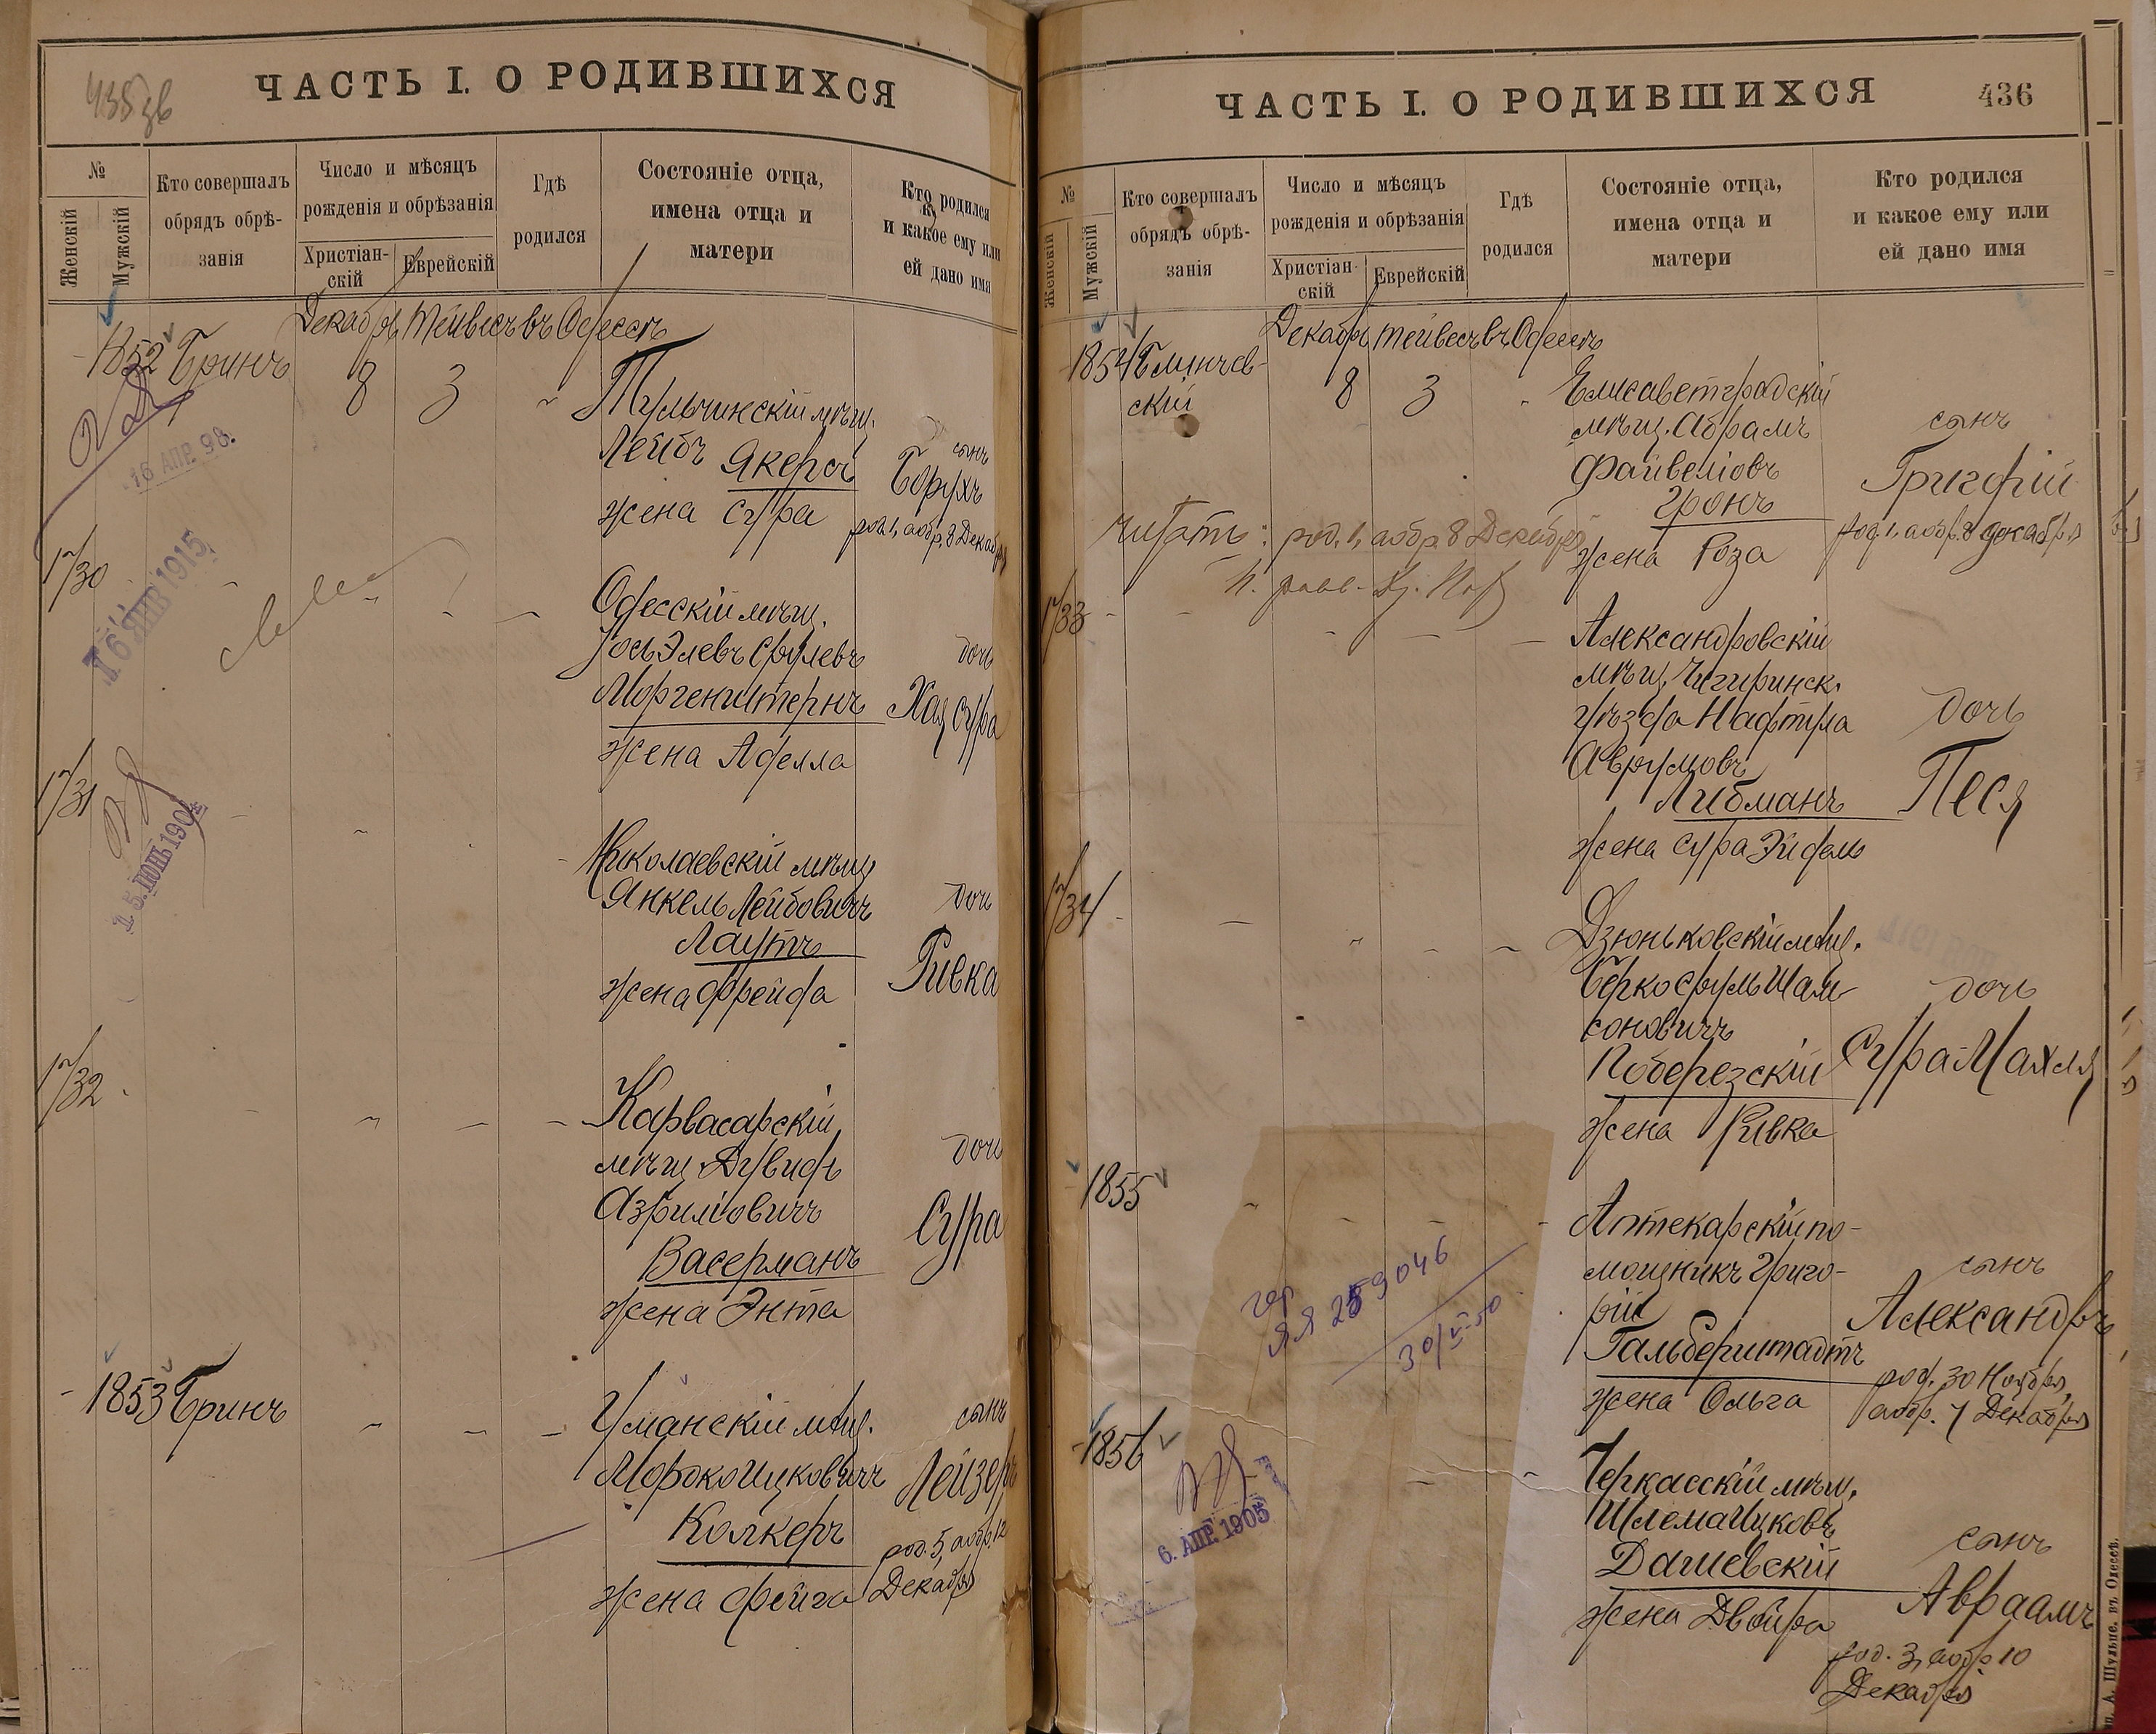 ЧАСТЬ I. О РОДИВШИХСЯ
№
Женскій
Мужскій
Кто совершалъ
обрядъ обрѣ-
занія
Число и мѣсяцъ
рожденія и обрѣзанія
Христіан-
скій
Еврейскій
Гдѣ
родился
Состояніе отца,
имена отца и
матери
Кто родился
и какое ему или
ей дано имя
Декабрь Тейвесъ въ Одессѣ
1852 Бринъ 8 3
Тульчинскій мѣщ.
Лейбъ Якеръ
жена Сура
сынъ
Борухъ
род. 1, аобр. 8 Декабря
16 АПР. 98.
1730
16 ЯНВ 1915
Одесскій мѣщ.
Іось Элевъ Срулевъ
Моргенштернъ
жена Аделла
дочь
Хая Сура
1731
Николаевскій мѣщ
Янкель Лейбовичъ
Лаутъ
жена Фрейда
дочь
Ривка
1732
Карвасарскій
мѣщ Дувидъ
Азриліовичъ
Васерманъ
жена Энта
дочь
Сура
1853 Бринъ
Уманскій мѣщ.
Мордко Ицковичъ
Колкеръ
жена Фейга
сынъ
Лейзеръ
род. 5, аобр. 12
Декабря
ЧАСТЬ I. О РОДИВШИХСЯ
436
№
Женскій
Мужскій
Кто совершалъ
обрядъ обрѣ-
занія
Число и мѣсяцъ
рожденія и обрѣзанія
Христіан-
скій
Еврейскій
Гдѣ
родился
Состояніе отца,
имена отца и
матери
Кто родился
и какое ему или
ей дано имя
Декабрь Тейвесъ въ Одессѣ
1854
скій
8 3
Елисаветградскій
мѣщ. Абрамъ
Файвеліовъ
Гронъ
жена Роза
сынъ
Григорій
род. 1, аобр. 8 декабря
читать: род. 1, аобр. 8 Декабря
1733
Александровскій
мѣщ. Чигиринск.
уѣзда Нафтула
Аврумовъ
Либманъ
жена Сура Эйдель
дочь
Песя
1734
Дзюньковскій мѣщ.
Берко Сруль Шам
соновичъ
Поберезскій
жена Ривка
дочь
Сура-Махля
1855
Аптекарскій по-
мощникъ Григо-
рій
Гальберштадтъ
жена Ольга
сынъ
Александръ
род. 30 Ноября,
аобр. 7 Декабря
259046
30/VI-50
1856
6. АПР. 1905
Черкасскій мѣщ.
Шлема Ицковъ
Дашевскій
жена Двойра
сынъ
Авраамъ
род. 3, аобр 10
Декабря
А. Шульце, въ Одессѣ.